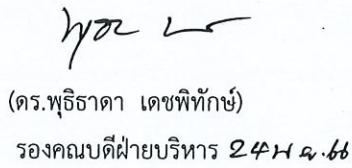 (ดร.พุธิธาดา เดชพิทักษ์)
รองคณบดีฝ่ายบริหาร 24 พ.ย. 66